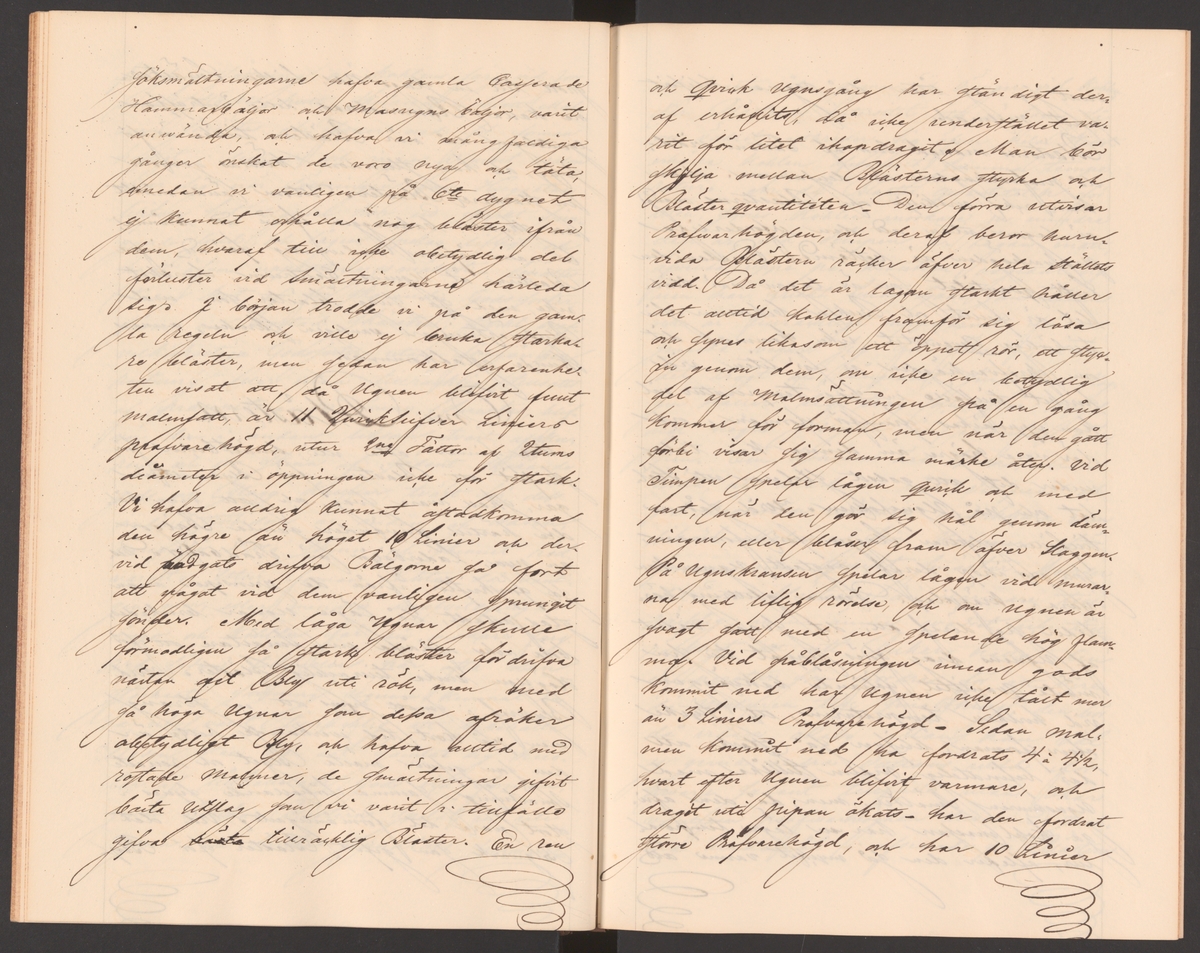 försmältningarne hafva gamla Casserade
Hammarbäljor och Masugns bäljor, varit
använda, och hafva vi mångfaldiga
gånger önskat de voro nya och täta,
emedan vi vanligen på 6te dygnet
ej kunnat erhålla nog bläster ifrån
dem, hvaraf till icke obetydlig del
förluster vid Smältningarne härleda
sig. I början trodde vi på den gam-
la regeln och ville ej bruka starka-
re bläster, men sedan har erfarenhe-
ten visat att, då Ugnen blifvit fullt
malmsatt, är 11 Quicksilfver Liniers
prafvarehögd, utur 2ne Tättor af 2tums
diameter i öppningen icke för stark.
Vi hafva aldrig kunnat åstadkomma
den högre än högst 10 Linier och der-
vid nödgats drifva Bälgorne så fort
att något vid dem vanligen sprungit
sönder. Med låga Ugnar skulle
förmodligen så stark bläster fördrifva
nästan allt Bly uti rök, men med
så höga Ugnar som dessa afröker
obetydligt Bly, och hafva alltid med
rostade malmer, de smältningar gifvit
bästa utslag som vi varit i tillfälle
gifva tillräcklig Bläster. En ren
och qvick Ugnsgång har ständigt der-
af erhållits, då icke understället va-
rit för litet ihopdraget. Man bör
skilja mellan Blästerns styrka och
Bläster qvantiteten - Den förra utvisar
Prafvarhögden, och deraf beror huru-
vida Blästern räcker öfver hela ställets
vidd. Då det är lagom starkt håller
det alltid kohlen framför sig lösa
och synes likasom ett öppet rör, ett styc-
ke genom dem, om icke en betydlig
del af Malmsättningen på en gång
kommer för forman, men när den gått
förbi visar sig samma märke åter. Vid
Timpen spelar lågen qvick och med
fart, när den gör sig hål genom däm-
ningen, eller blåser fram öfver Slaggen.
På Ugnskransen spelar lågen vid murar-
na med liflig rörelse, och om ugnen är
svagt satt med en spelande hög flam-
ma. Vid påblåsningen innan gods
kommit ned har Ugnen icke tålt mer
än 3 Liniers Prafvarehögd - Sedan mal-
men kommit ned ha fordrats 4 à 4½,
hvart efter Ugnen blifvit varmare, och
draget uti pipan ökats - har den fordrat
större Prafvarehögd, och har 10 Linier